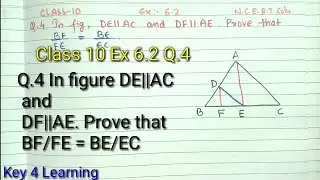 CLASS-10 Ex:-6.2 N.C.E.R.T Soln.
Q.4 In fig, DE||AC and DF||AE. Prove that
BF/FE = BE/EC
Class 10 Ex 6.2 Q.4
Q.4 In figure DE||AC
and
DF||AE. Prove that
BF/FE = BE/EC
A
D
B F E C
Key 4 Learning